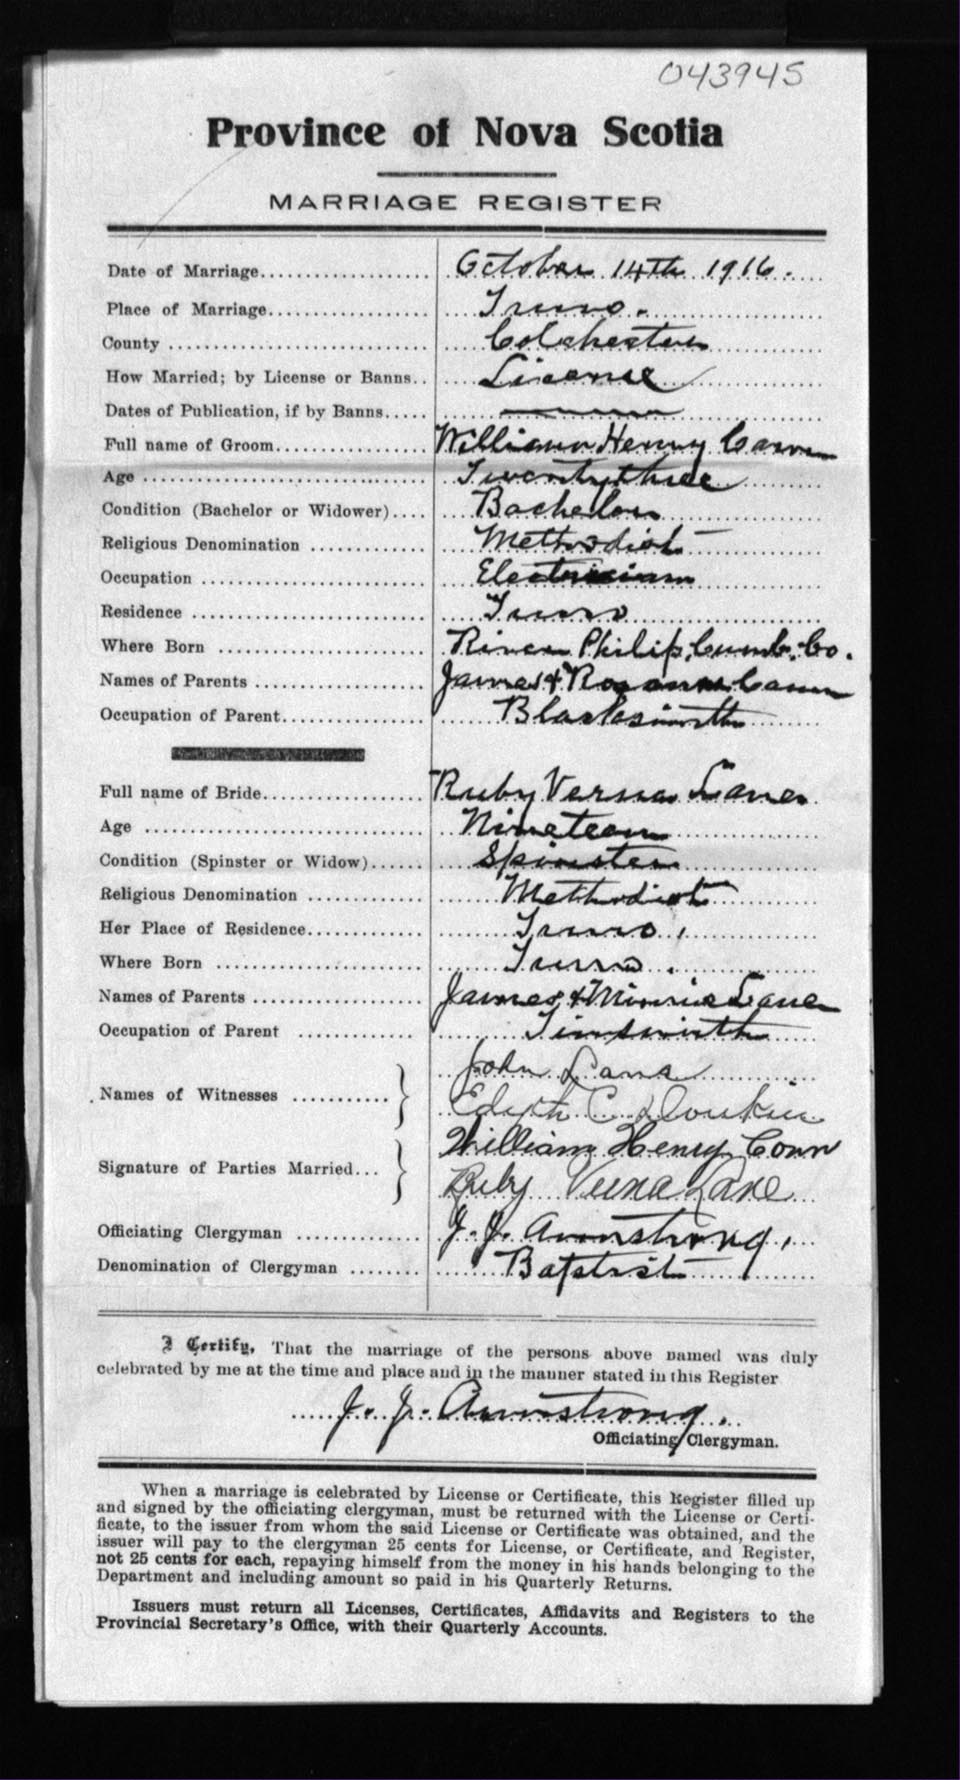 043945
Province of Nova Scotia
MARRIAGE REGISTER
Date of Marriage.................... October 14th 1916.
Place of Marriage.................. Truro.
County ............................ Colchester
How Married; by License or Banns.. License
Dates of Publication, if by Banns.....
Full name of Groom................. William Henry
Age ............................... Twenty three
Condition (Bachelor or Widower).... Bachelor
Religious Denomination ............. Methodist
Occupation ........................ Electrician
Residence ......................... Truro
Where Born ....................... River Philip, Cumb. Co.
Names of Parents .................. James &
Occupation of Parent................ Blacksmith
Full name of Bride.................. Ruby Verna Lane
Age ............................... Nineteen
Condition (Spinster or Widow)...... Spinster
Religious Denomination ............. Methodist
Her Place of Residence............. Truro.
Where Born ....................... Truro.
Names of Parents .................. James & Minnie Lane
Occupation of Parent .............. Tinsmith
John Lane
Names of Witnesses ...........
Edyth C.
William Henry Conn
Signature of Parties Married...
Ruby Verna Lane
Officiating Clergyman .............. J. J. Armstrong.
Denomination of Clergyman ........ Baptist
I Certify, That the marriage of the persons above named was duly
celebrated by me at the time and place and in the manner stated in this Register
J. J. Armstrong.
Officiating Clergyman.
When a marriage is celebrated by License or Certificate, this Register filled up
and signed by the officiating clergyman, must be returned with the License or Certi-
ficate, to the issuer from whom the said License or Certificate was obtained, and the
issuer will pay to the clergyman 25 cents for License, or Certificate, and Register,
not 25 cents for each, repaying himself from the money in his hands belonging to the
Department and including amount so paid in his Quarterly Returns.
Issuers must return all Licenses, Certificates, Affidavits and Registers to the
Provincial Secretary's Office, with their Quarterly Accounts.